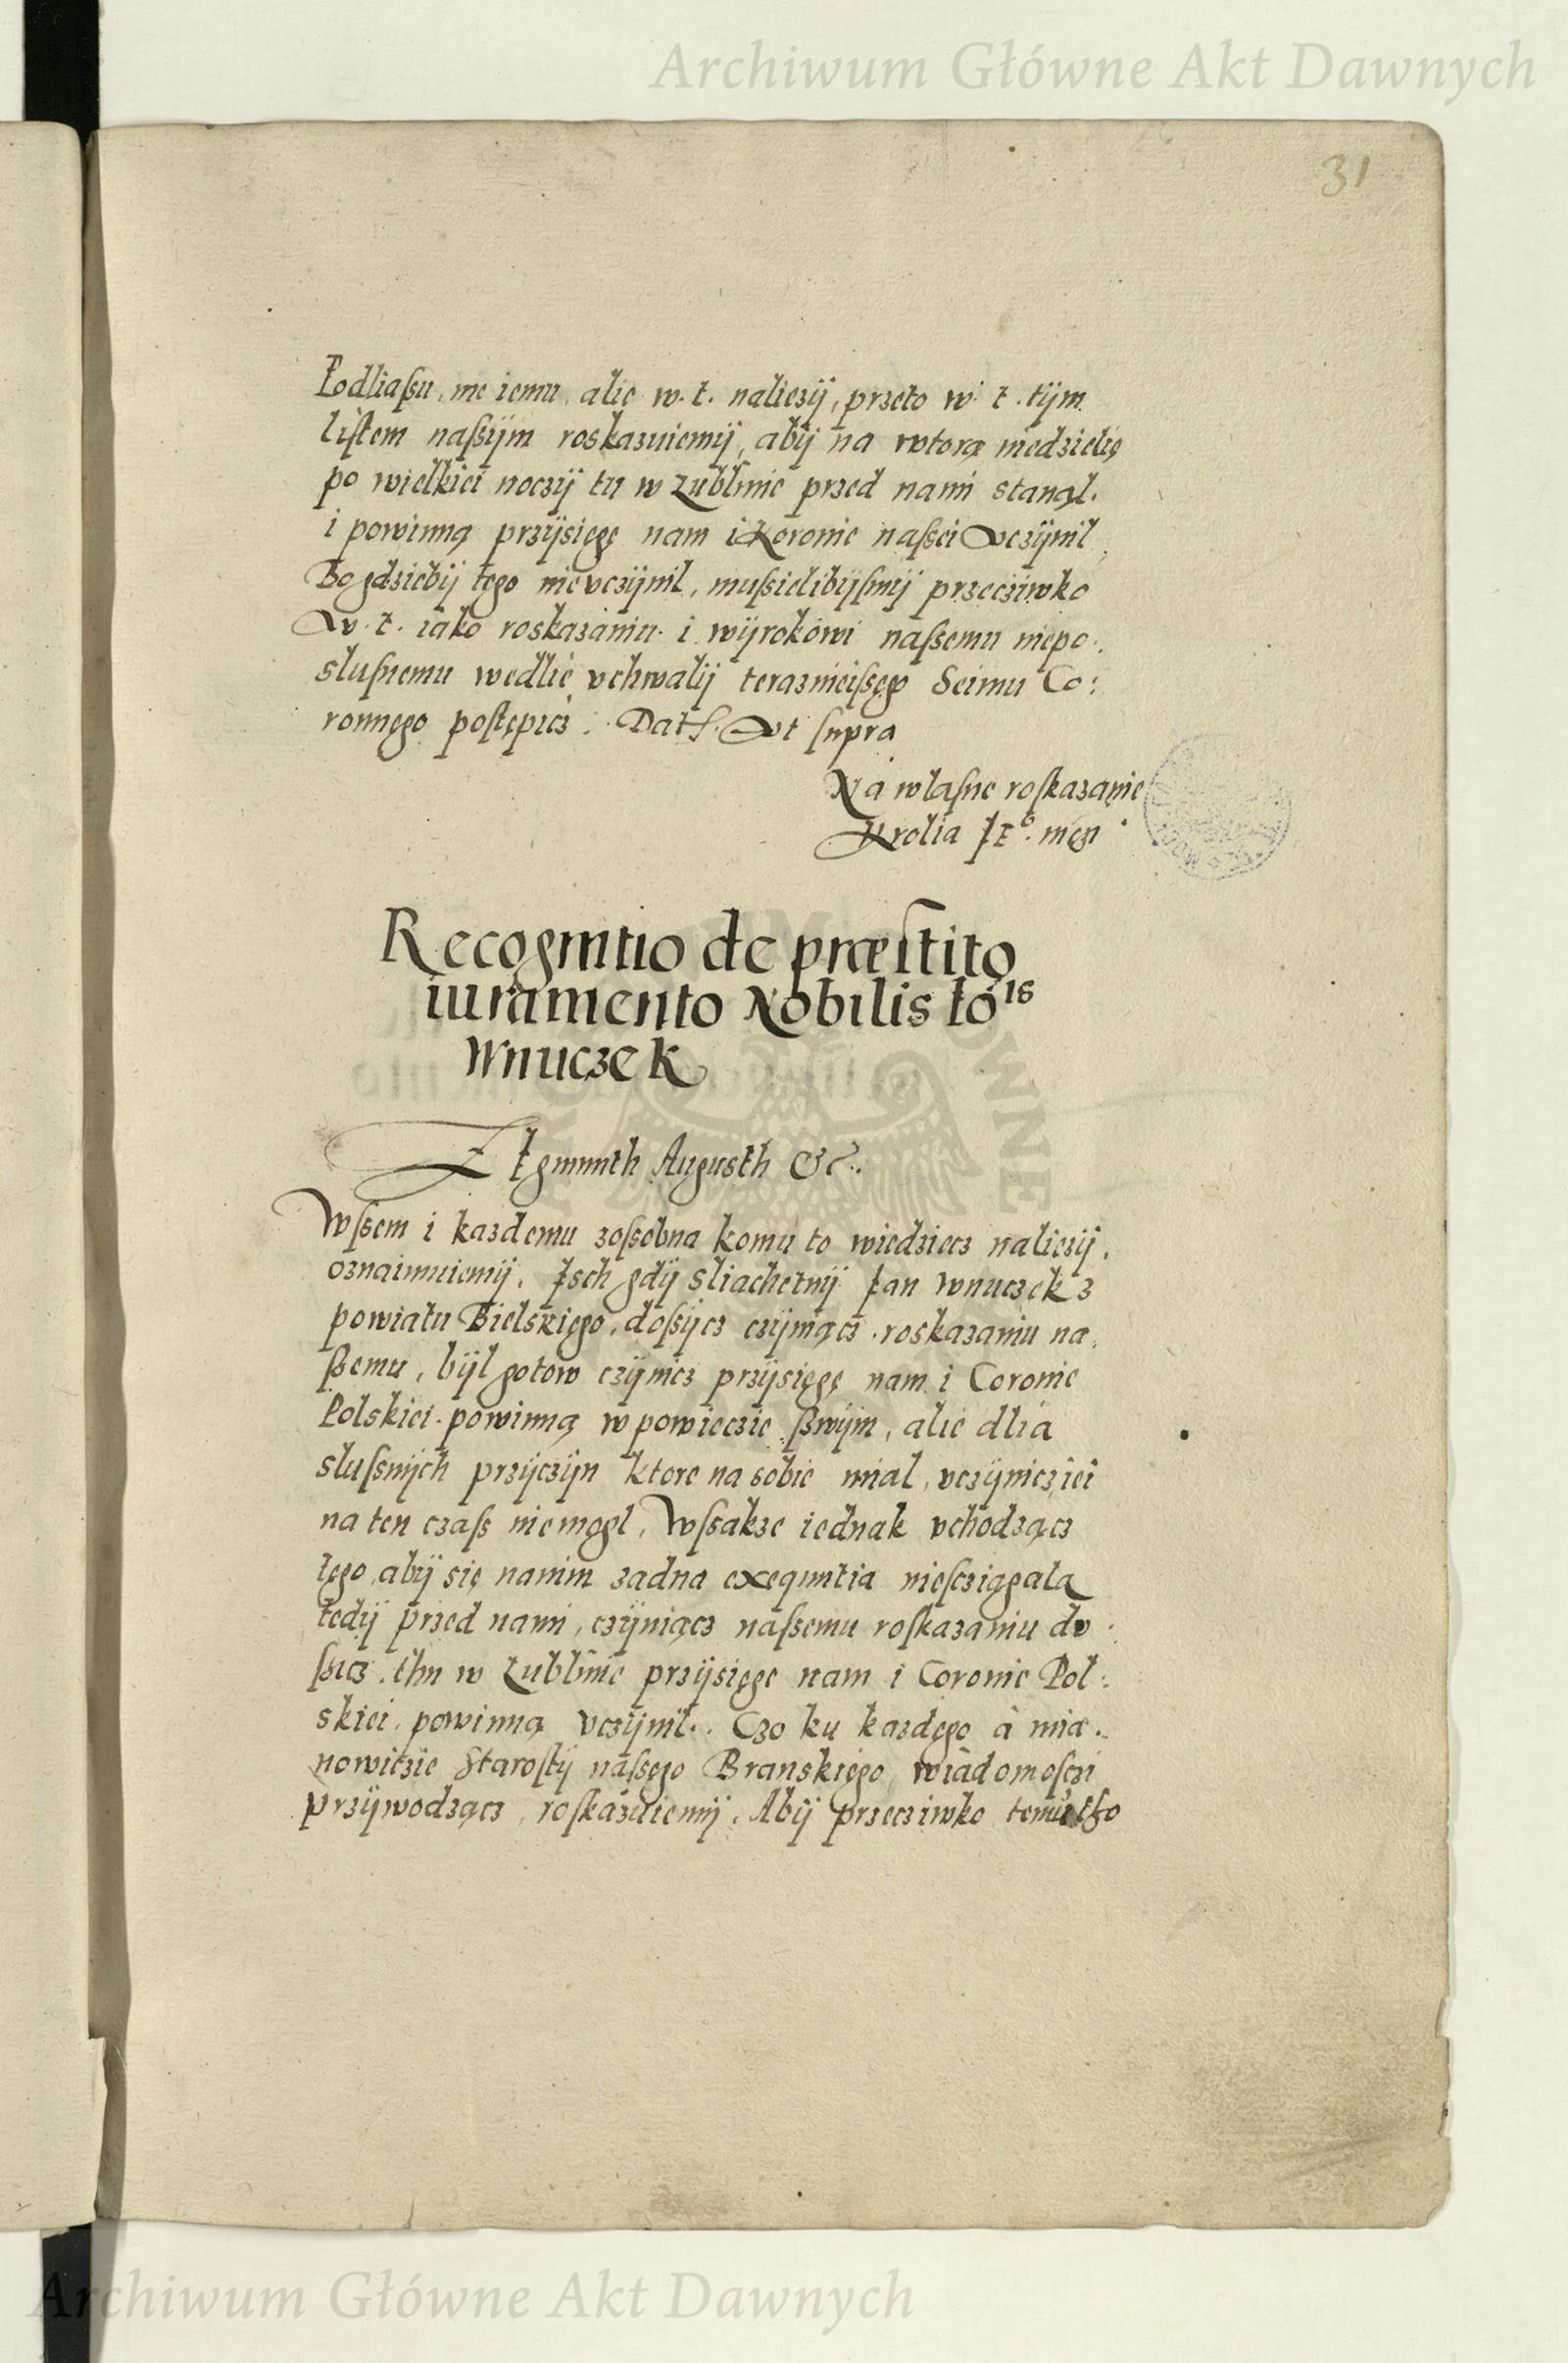 Archiwum Główne Akt Dawnych
31
Podliaßu, nie iemu, alie w. t. naliezÿ, przeto w. t. tÿm
listem naßÿm roskazuiemÿ, abÿ na wtorą niedzielię
po wielkiei noczÿ tu w Lublinie przed nami stanąl.
i powinną przÿsięgę nam i Koronie naßei vczÿnil,
Bo gdziebÿ tego nie vczÿnil, mußielibÿsmÿ przecziwko
w. t. iako roskazaniu i wÿrokowi naßemu niepo:
slusnemu wedlie vchwalÿ teraznieißego Seimu Co:
ronnego postępicz. Dat. vt supra
Na wlasne roskazanie
Krolia Je° m.
Recognitio de præstito
iuramento Nobilis Jois
Wnuczek
Zÿgmunth Augusth &c.
Wßem i kazdemu zoßobna komu to wiedziecz naliezÿ,
oznaimuiemÿ, Jsch gdÿ sliachetnÿ Jan Wnuczek z
powiatu Bielskiego, dosÿcz czÿniącz roskazaniu na,
ßemu, bÿl gotow czÿnicz przÿsięgę nam i Coronie
Polskiei powinną w powieczie ßwÿm, alie dlia
slußnÿch przÿczÿn ktore na sobie mial, vczÿnicz iei
na ten czaß nie mogl, Wßakze iednak vchodzącz
tego, abÿ się nanim zadna exequutia niesczięgala
tedÿ przed nami, czÿniącz naßemu roskazaniu do:
ßicz, thu w Lublinie przÿsięge nam i Coronie Pol:
skiei, powinną vczÿnil. Czo ku kazdego à mia:
nowiczie Starostÿ naßego Branskiego wiadomosczi
przÿwodzącz, roskazuiemÿ, Abÿ przecziwko temu
Archiwum Główne Akt Dawnych